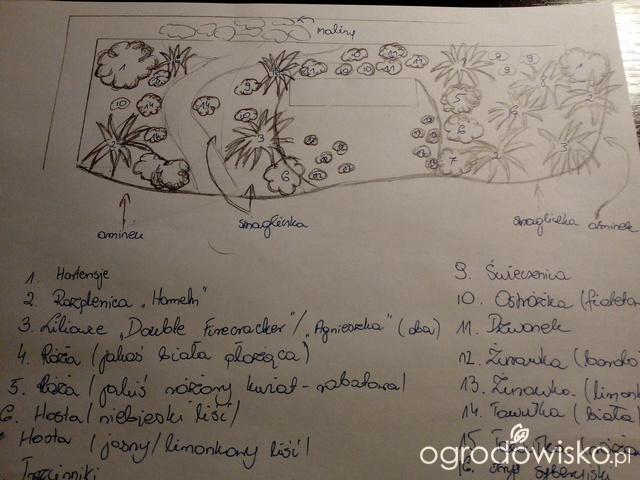 maliny
aminek
smagliczka
smagliczka aminek
1. Hortensje
2. Rozplenica „Hameln"
3. Liliowce „Double Firecracker"/„Agnieszka" (oba)
4. Róża (jakaś biała płożąca)
5. Róża (jakiś różowy kwiat-rabatowa)
6. Hosta (niebieski liść)
Hosta (jasny/limonkowy liść)
Trzcinniki
9. Świecznica
10. Ostróżka (fioletow
11. Dzwonek
12. Żurawka (bordo
13. Żurawka (limonk
14. Tawułka (biała)
15. Tawułka
16. irys syberyjski
ogrodowisko.pl